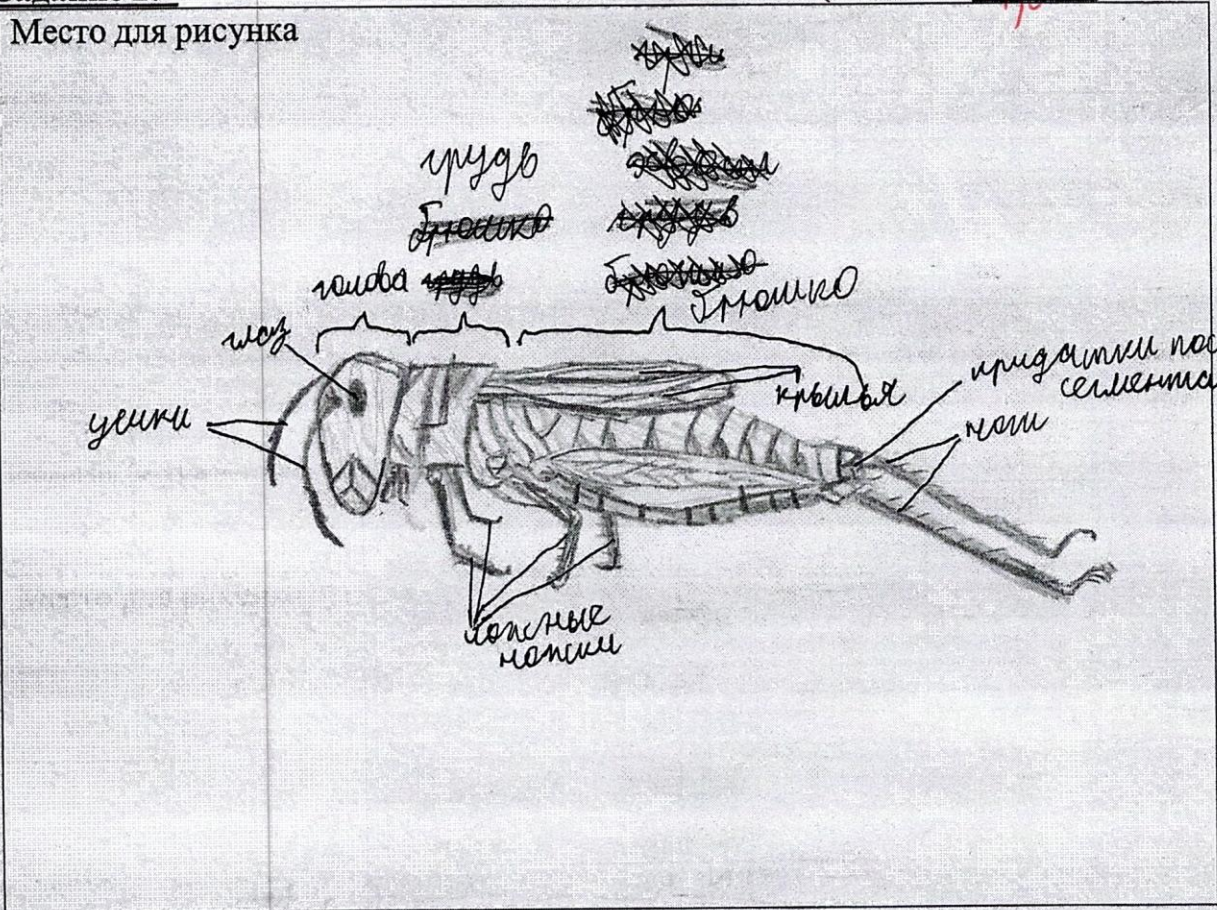 Место для рисунка
грудь
брюшко
голова грудь
брюшко
глаз
усики
крылья
придатки пос
сегмента
ноги
ложные
ножки